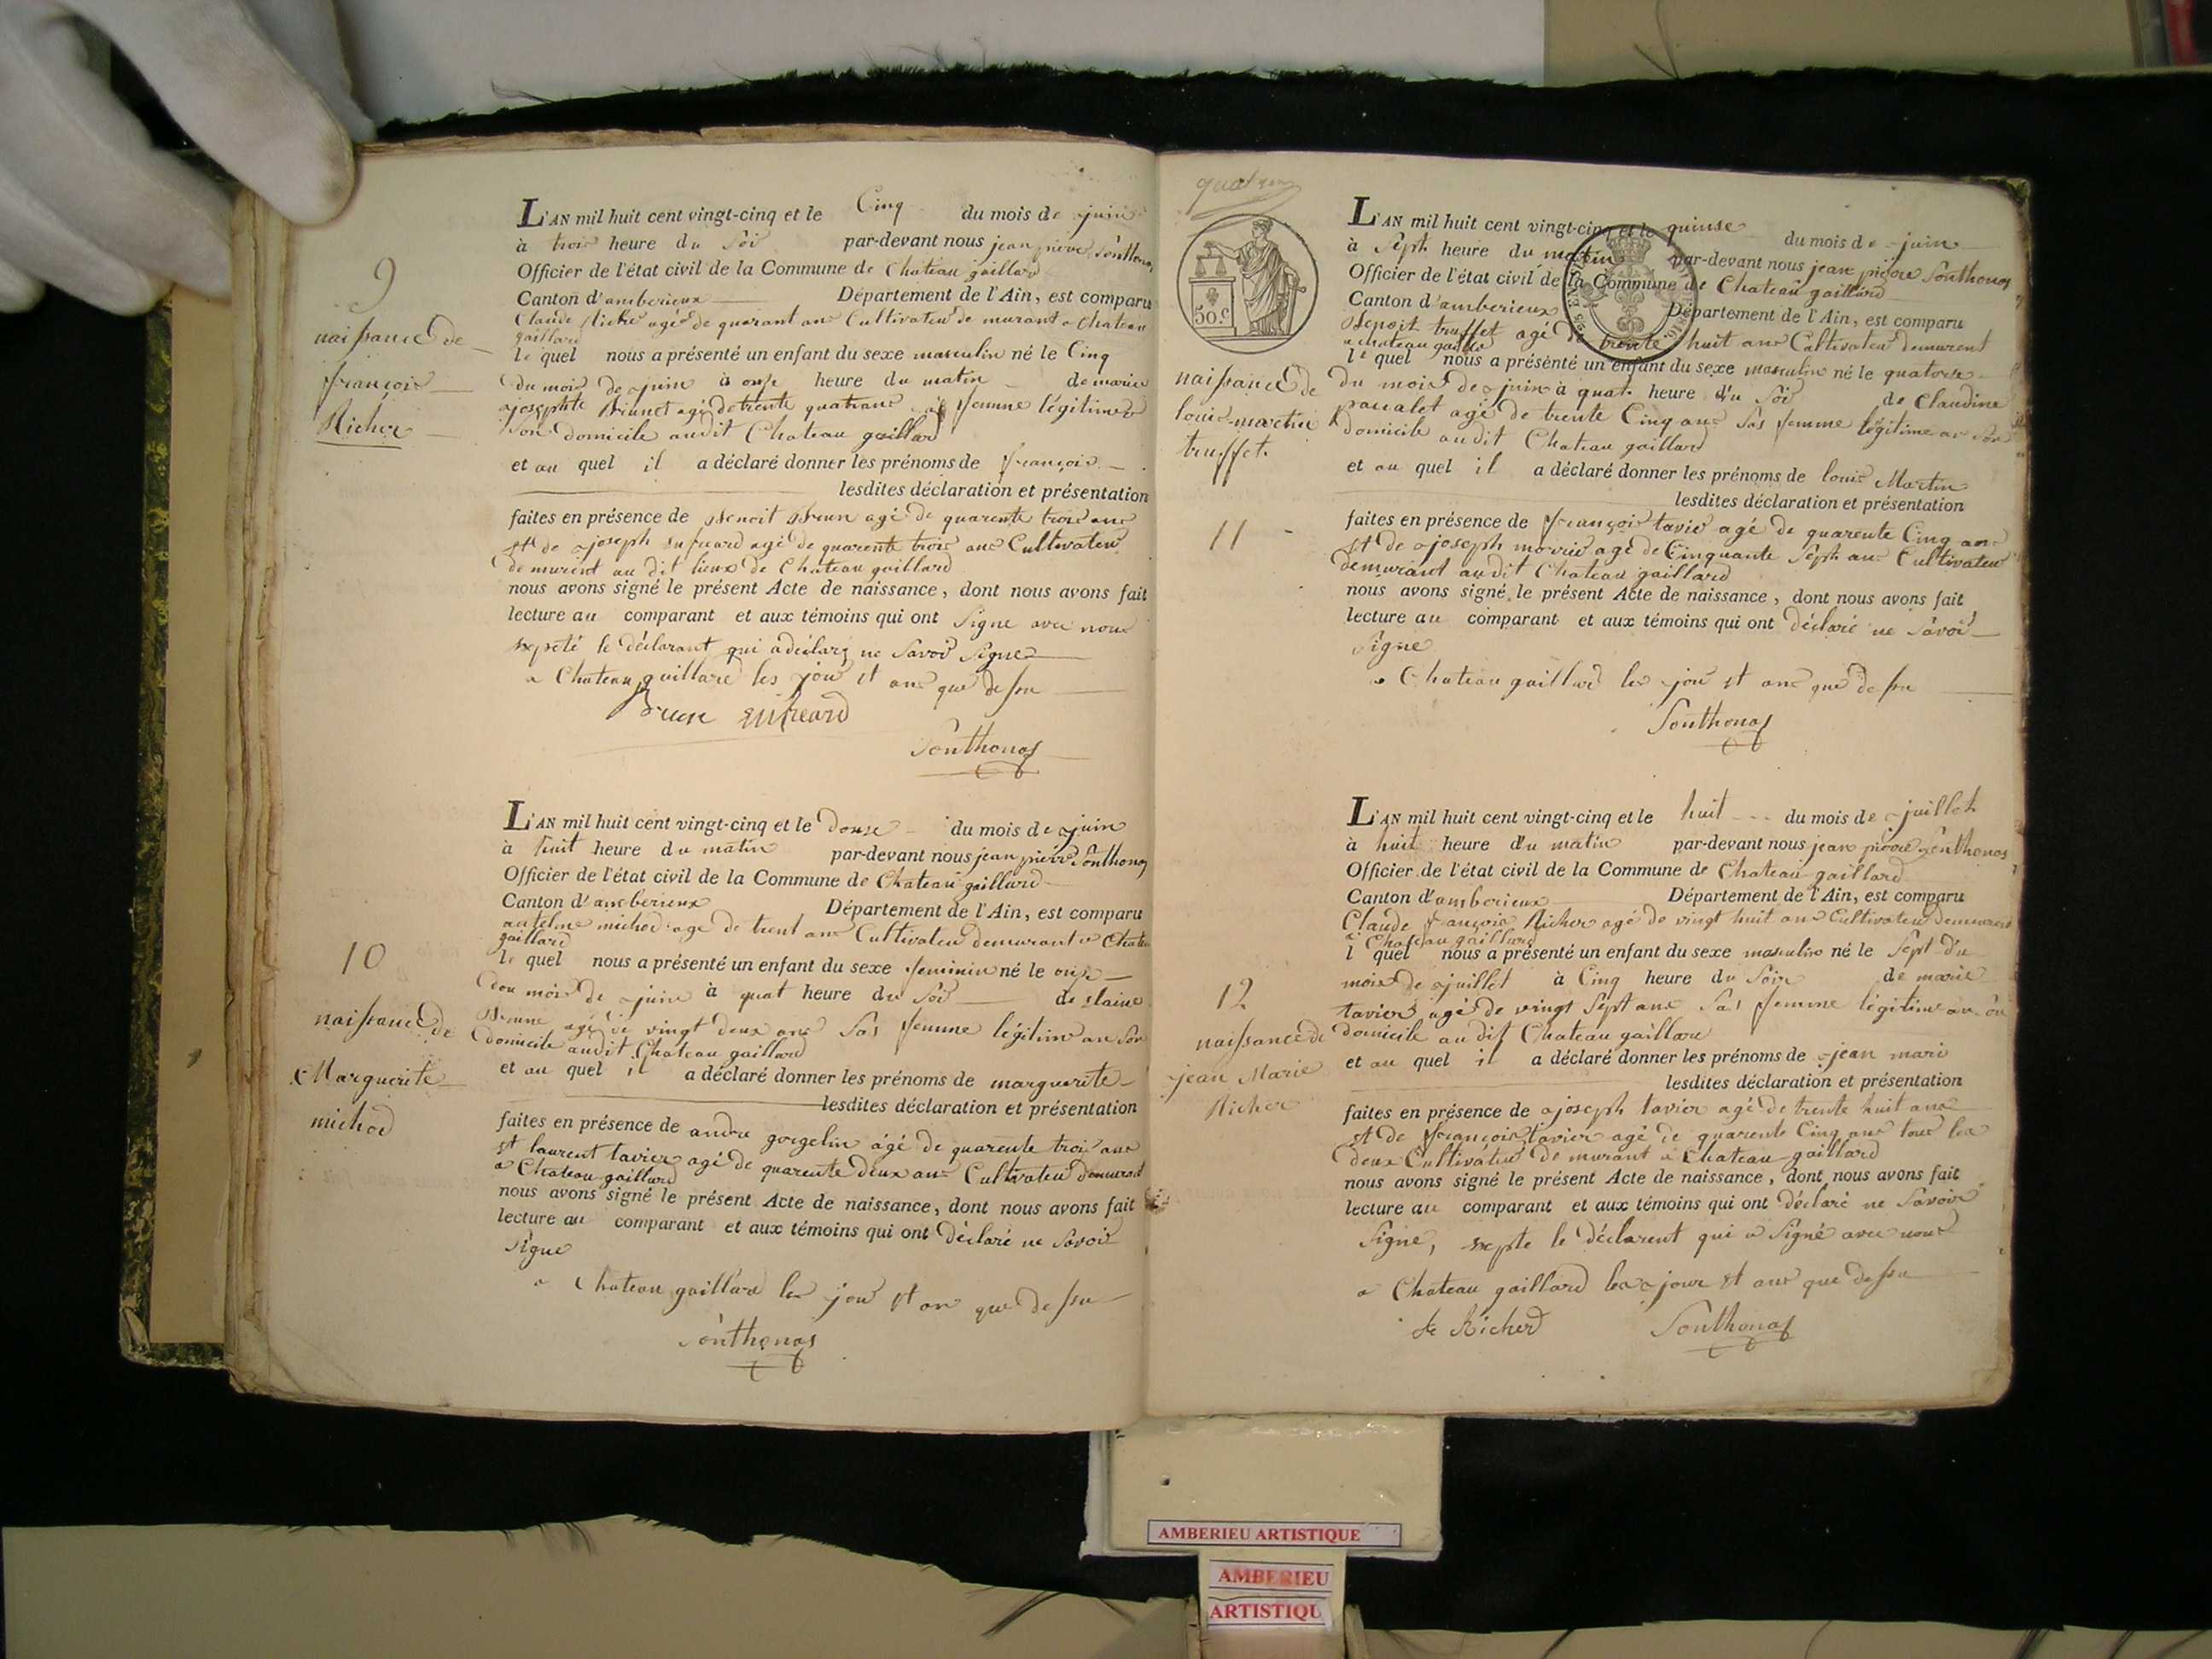 9
naissance de
françois
Richer
L'AN mil huit cent vingt-cinq et le Cinq du mois de juin
à trois heure du soir par-devant nous jean pierre Sonthonas
Officier de l'état civil de la Commune de Chateau gaillard
Canton d'amberieux Département de l'Ain, est comparu
Claude Richer agé de quarant ans Cultivateu demurant a Chateau
gaillard
le quel nous a présenté un enfant du sexe masculin né le Cinq
du mois de juin à onse heure du matin de marie
josephte Brunet agé de trente quatr ans sa femme légitime
son domicile audit Chateau gaillard
et au quel il a déclaré donner les prénoms de françois
lesdites déclaration et présentation
faites en présence de Benoit Brun agé de quarente trois ans
et de joseph agé de quarente trois ans Cultivateu
demurent au dit lieux de Chateau gaillard
nous avons signé le présent Acte de naissance, dont nous avons fait
lecture au comparant et aux témoins qui ont signe avec nous
le déclarant qui a déclaré ne savoir signe
a Chateau gaillard les jour et ans que dessu
Brun
Sonthonas
10
naissance de
Marguerite
michod
L'AN mil huit cent vingt-cinq et le douse du mois de juin
à huit heure du matin par-devant nous jean pierre Sonthonas
Officier de l'état civil de la Commune de Chateau gaillard
Canton d'amberieux Département de l'Ain, est comparu
antelme michod age de trent ans Cultivateu demurant a Chateau
gaillard
le quel nous a présenté un enfant du sexe feminin né le onse
dou mois de juin à quat heure du soir de
agé de vingt deux ans sas femme légitime an son
domicile audit Chateau gaillard
et au quel il a déclaré donner les prénoms de marguerite
lesdites déclaration et présentation
faites en présence de andre gorgelin agé de quarente trois ans
et laurent tavier agé de quarente deux ans Cultivateu demurant
a Chateau gaillard
nous avons signé le présent Acte de naissance, dont nous avons fait
lecture au comparant et aux témoins qui ont déclaré ne savoir
signe
a Chateau gaillard les jour et an que dessu
Sonthonas
50.c
naissance de
louis martin
truffet
11
L'AN mil huit cent vingt-cinq et le quinse du mois de juin
à sept heure du matin par-devant nous jean pierre Sonthonas
Officier de l'état civil de la Commune de Chateau gaillard
Canton d'amberieux Département de l'Ain, est comparu
Benoit truffet agé de trente huit ans Cultivateu demurent
a chateau gaillard
le quel nous a présenté un enfant du sexe masculin né le quatorse
du mois de juin à quat. heure du soir de Claudine
agé de trente Cinq ans sas femme légitime an son
domicile audit Chateau gaillard
et au quel il a déclaré donner les prénoms de louis Martin
lesdites déclaration et présentation
faites en présence de françois tavier agé de quarente Cinq ans
et de joseph agé de Cinquante sept ans Cultivateu
demurant audit Chateau gaillard
nous avons signé le présent Acte de naissance, dont nous avons fait
lecture au comparant et aux témoins qui ont déclaré ne savoir
signe
a Chateau gaillard les jour et ans que dessu
Sonthonas
12
naissance de
jean Marie
Richer
L'AN mil huit cent vingt-cinq et le huit du mois de juillet
à huit heure du matin par-devant nous jean pierre Sonthonas
Officier de l'état civil de la Commune de Chateau gaillard
Canton d'amberieux Département de l'Ain, est comparu
Claude françois Richer agé de vingt huit ans Cultivateu demurent
a Chateau gaillard
l quel nous a présenté un enfant du sexe masculin né le sept du
mois de juillet à Cinq heure du soir de marie
tavier agé de vingt sept ans sas femme légitime an son
domicile au dit Chateau gaillard
et au quel il a déclaré donner les prénoms de jean mari
lesdites déclaration et présentation
faites en présence de joseph tavier agé de trente huit ans
et de françois tavier agé de quarente Cinq ans tous les
deux Cultivateu demurant a Chateau gaillard
nous avons signé le présent Acte de naissance, dont nous avons fait
lecture au comparant et aux témoins qui ont déclaré ne savoir
signe, septe le déclarent qui a signé avec nous
a Chateau gaillard les jour et ans que dessu
Richer Sonthonas
AMBERIEU ARTISTIQUE
AMBERIEU
ARTISTIQU